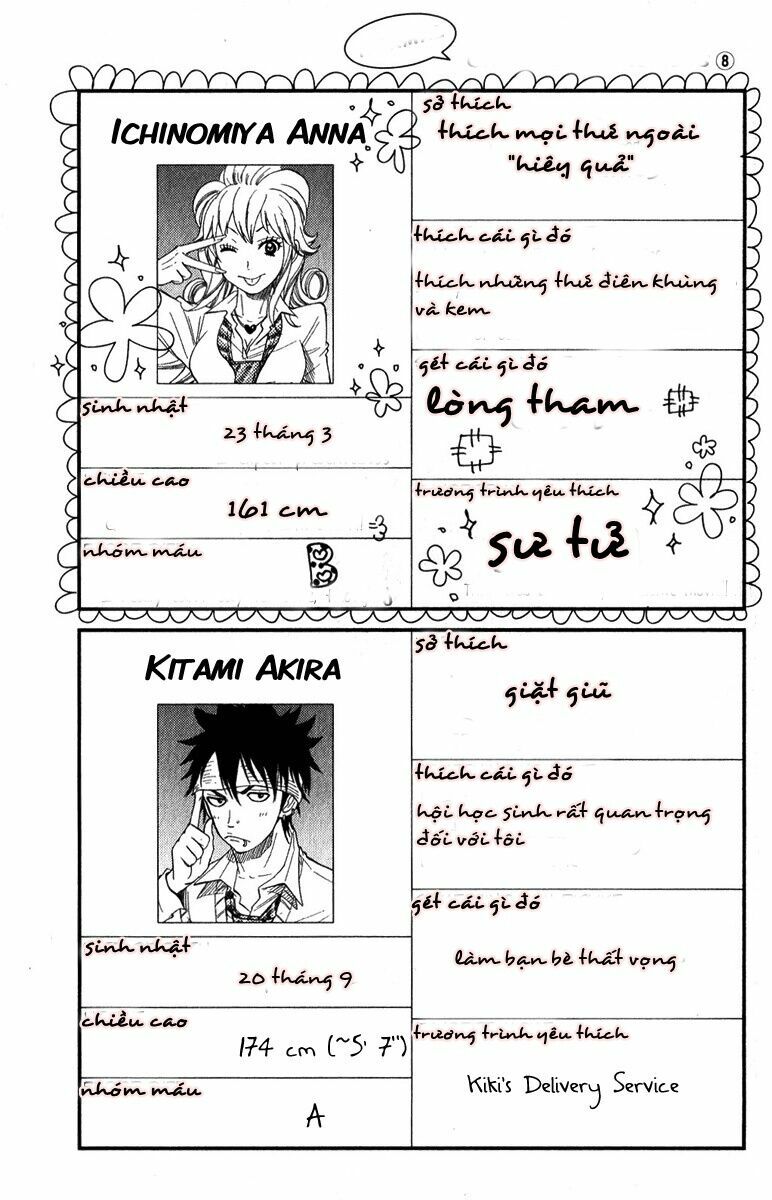 8
ICHINOMIYA ANNA
sinh nhật
23 tháng 3
chiều cao
161 cm
nhóm máu
B
sở thích
thích mọi thứ ngoài
"hiêụ quả"
thích cái gì đó
thích những thứ điên khùng
và kem
gét cái gì đó
lòng tham
trương trình yêu thích
sư tử
KITAMI AKIRA
sinh nhật
20 tháng 9
chiều cao
174 cm (~5' 7")
nhóm máu
A
sở thích
giặt giũ
thích cái gì đó
hội học sinh rất quan trọng
đối với tôi
gét cái gì đó
làm bạn bè thất vọng
trương trình yêu thích
Kiki's Delivery Service